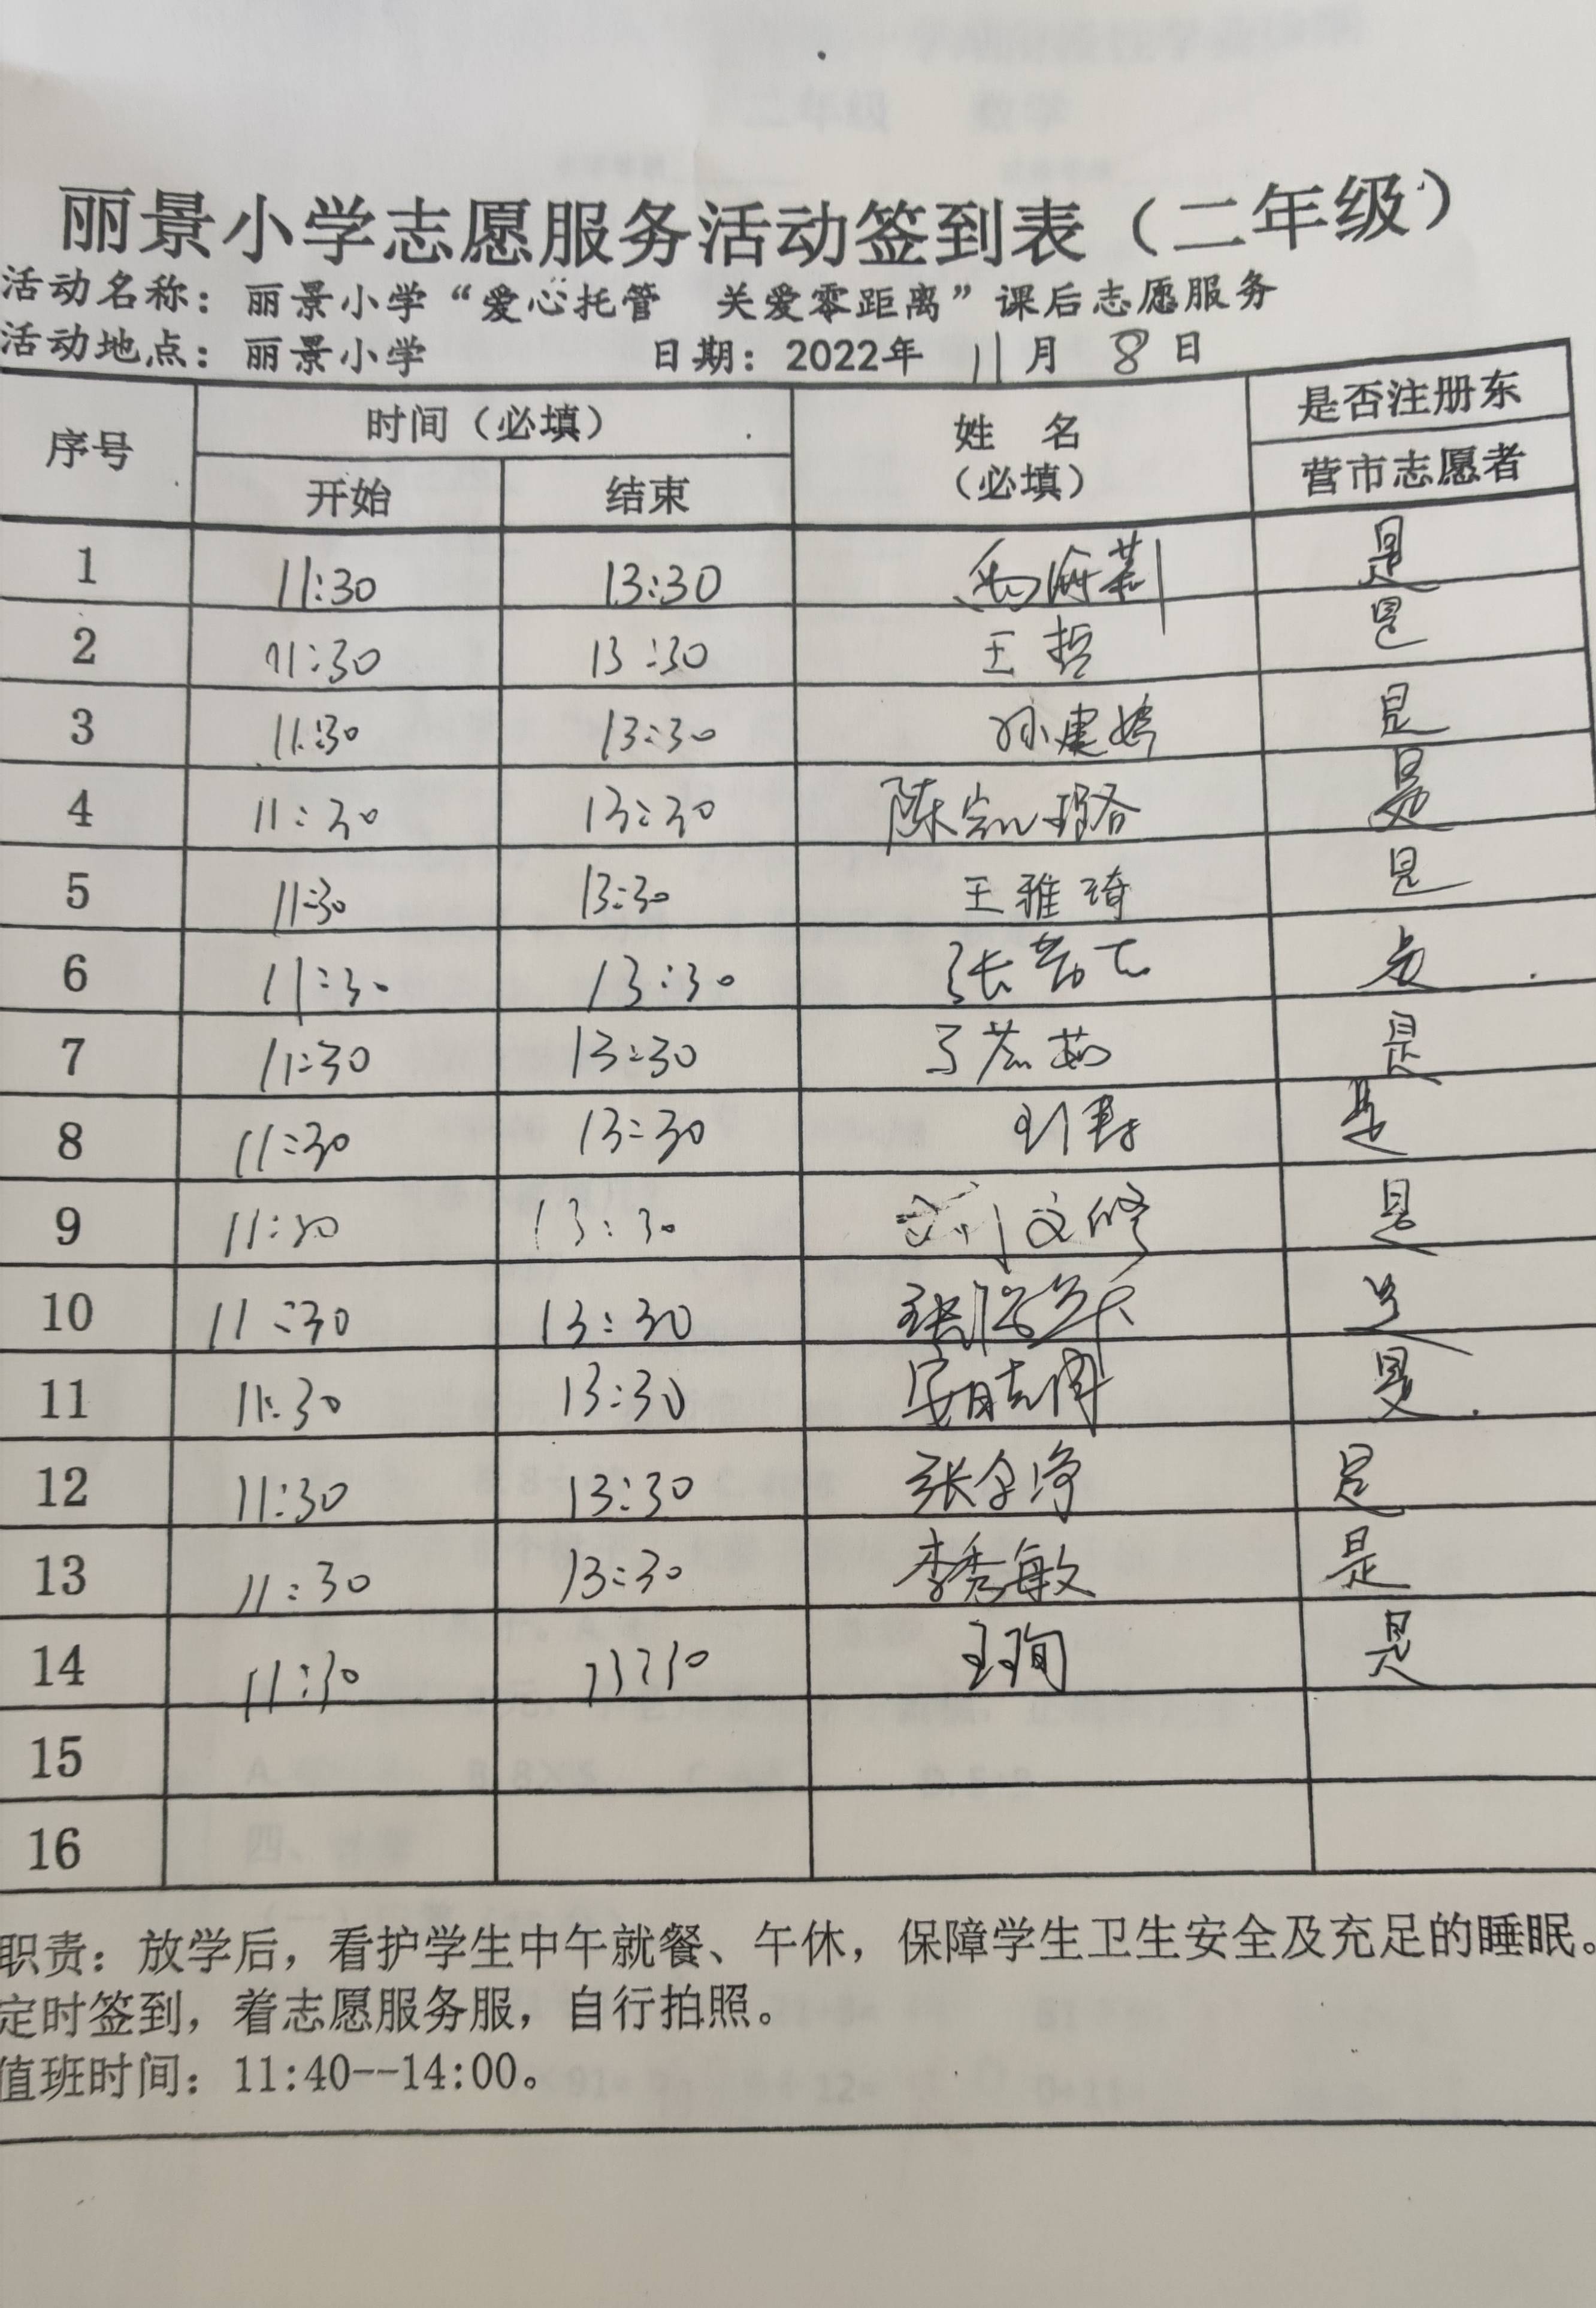 丽景小学志愿服务活动签到表（二年级）
活动名称：丽景小学“爱心托管 关爱零距离”课后志愿服务
活动地点：丽景小学 日期：2022年 11月 8日
序号 时间（必填） 姓 名 是否注册东
开始 结束 （必填） 营市志愿者
1 11:30 13:30 是
2 11:30 13:30 王哲 是
3 11:30 13:30 孙建婷 是
4 11:30 13:30 陈 是
5 11:30 13:30 王雅琦 是
6 11:30 13:30 张 是
7 11:30 13:30 是
8 11:30 13:30 是
9 11:30 13:30 刘文修 是
10 11:30 13:30 张 是
11 11:30 13:30 是
12 11:30 13:30 张 是
13 11:30 13:30 李秀敏 是
14 11:30 13:30 王珣 是
15
16
职责：放学后，看护学生中午就餐、午休，保障学生卫生安全及充足的睡眠。
定时签到，着志愿服务服，自行拍照。
值班时间：11:40--14:00。